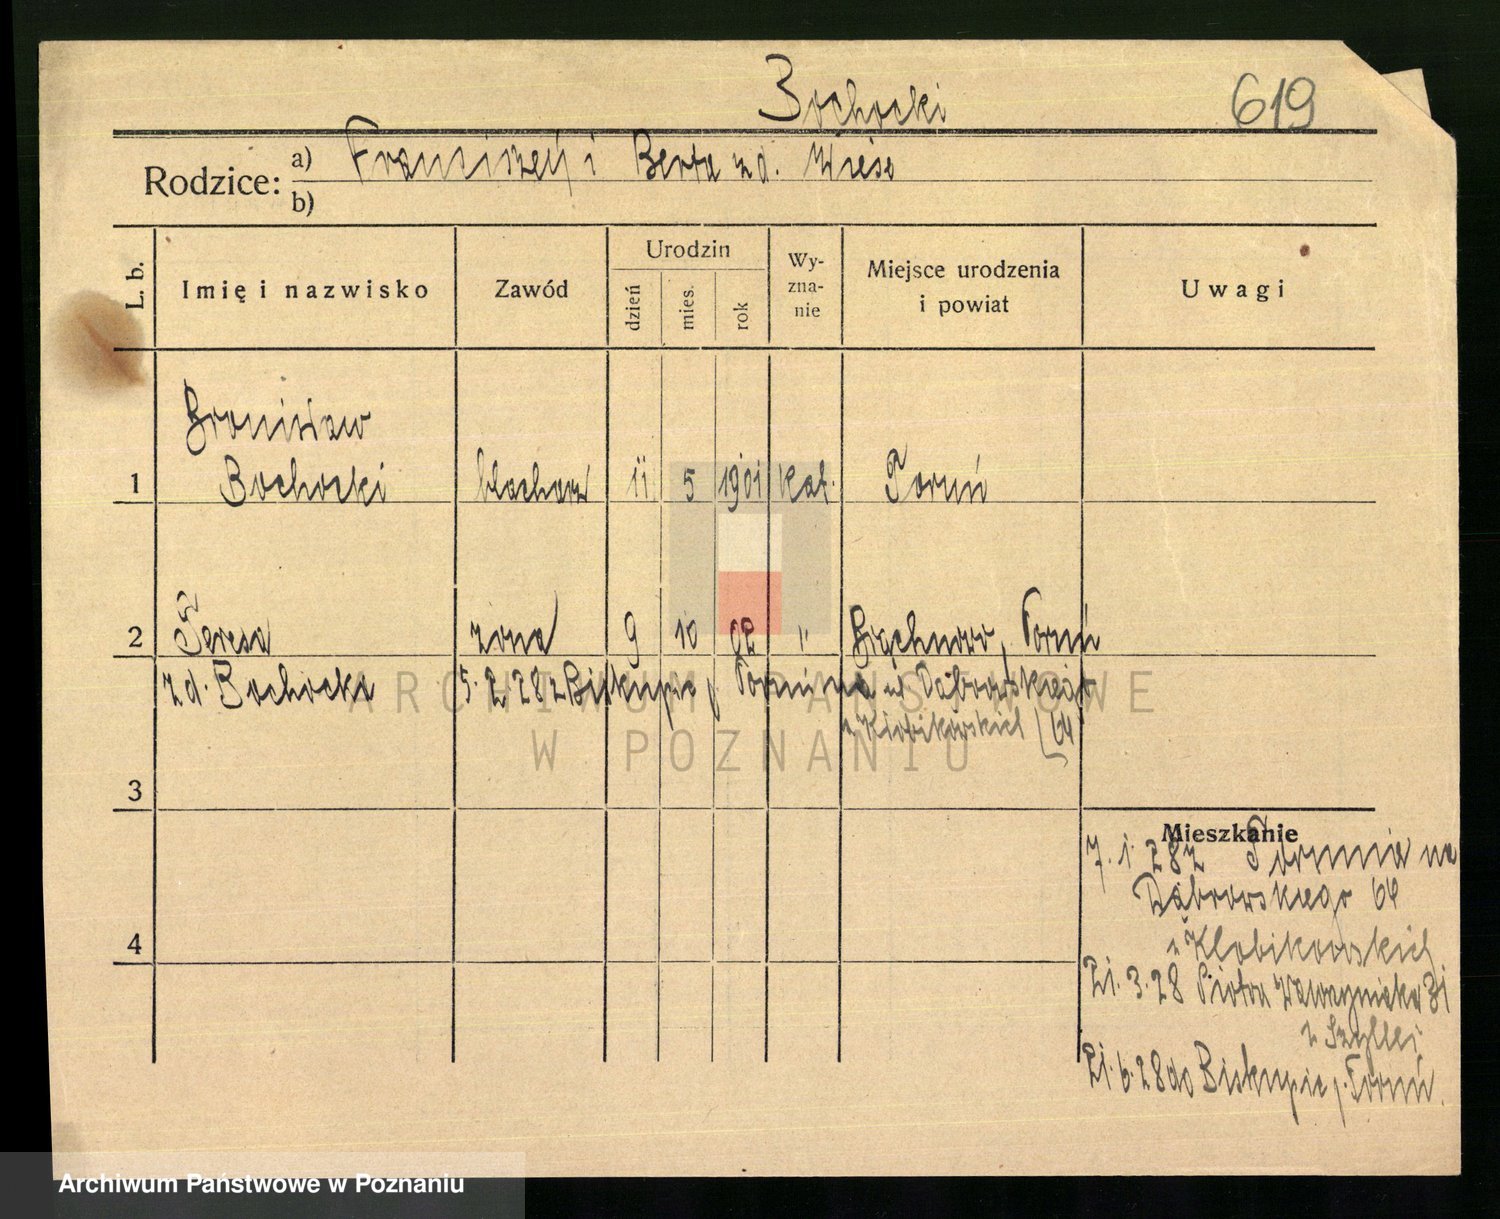 Bochocki
619
Rodzice: a) Franciszek i Berta z d. Wiese
b)
L. b. Imię i nazwisko Zawód Urodzin dzień mies. rok Wy-zna-nie Miejsce urodzenia i powiat Uwagi
Bronisław
1 Bochocki blacharz 11 5 1901 kat. Toruń
2 Teresa żona 9 10 02 " Toruń
z d. Bochocka 5.2.28 z Biskupic p. Toruń na ul Dąbrowskiego
u Klobikowskich 64
3
Mieszkanie
7.1.28 z Torunia na
Dąbrowskiego 64
4 u Klobikowskich
21.3.28 Piotra Wawrzyniaka 31
u Szylli
21.6.28 do Biskupic p. Toruń.
ARCHIWUM PAŃSTWOWE
W POZNANIU
Archiwum Państwowe w Poznaniu